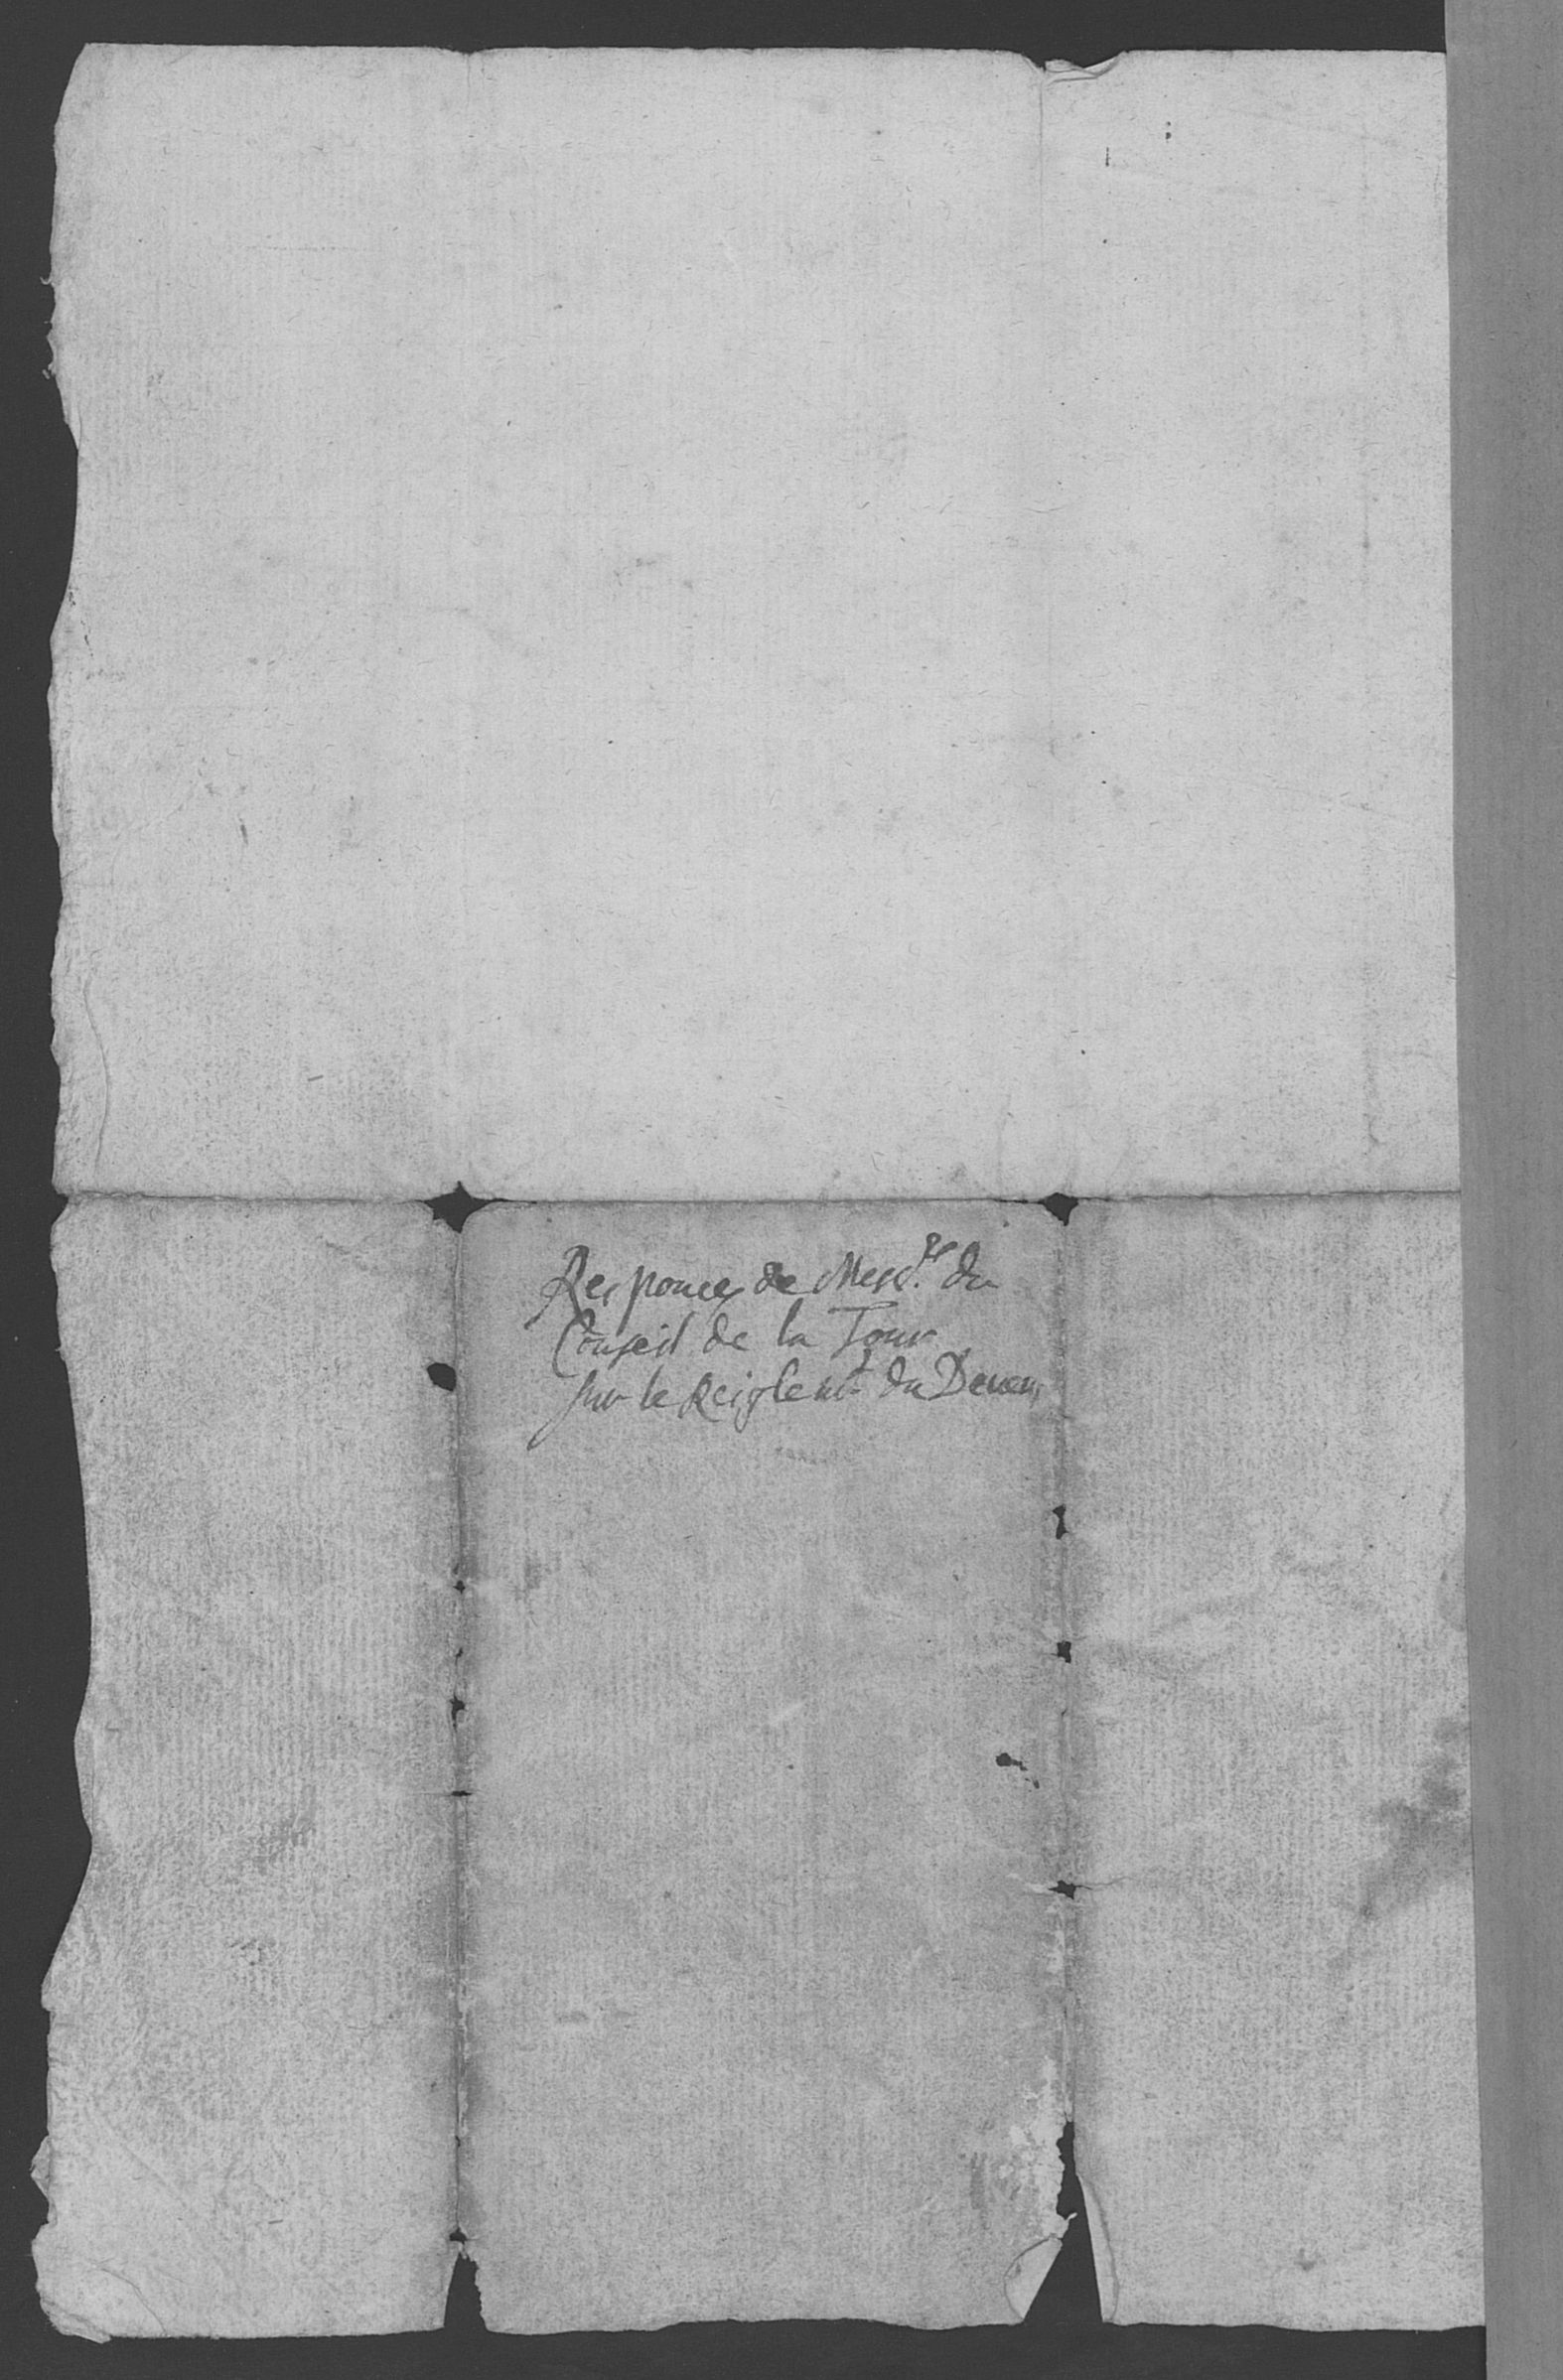 Responces de Mess.rs du
Conseil de la Tour
sur le Reiglem.t du Deven